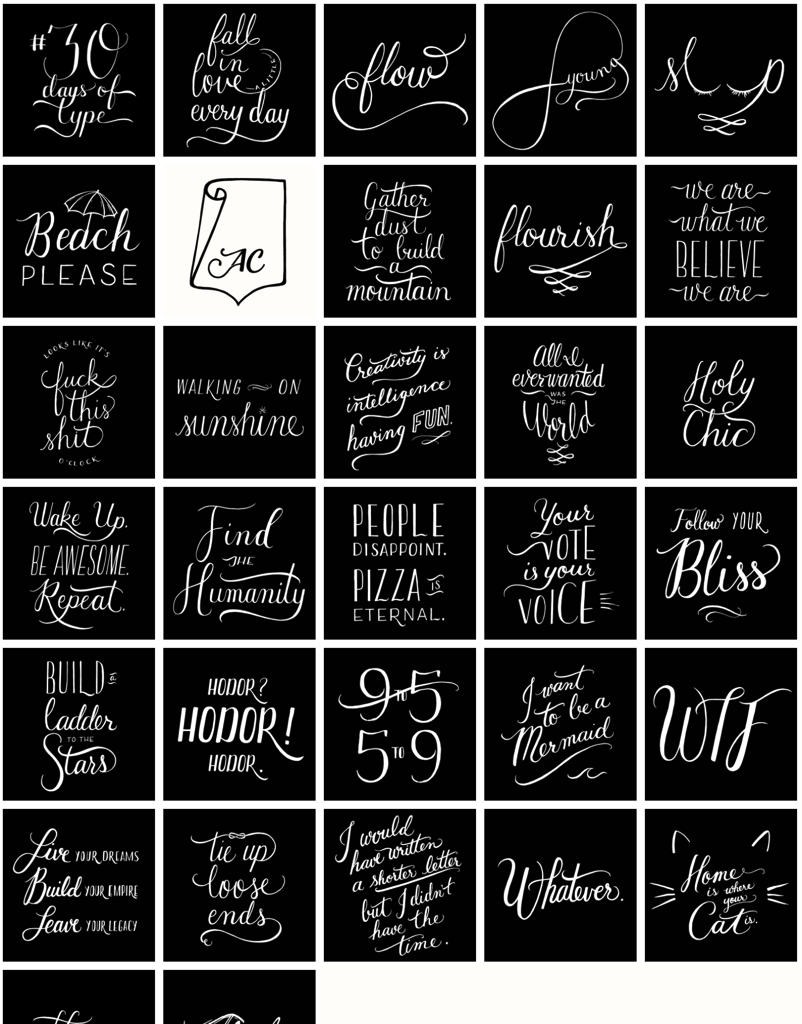 #30
days of
type
fall
in
love
A LITTLE
every day
flow
young
sleep
Beach
PLEASE
AC
Gather
dust
to build
a
mountain
flourish
we are
what we
BELIEVE
we are
LOOKS LIKE IT'S
fuck
this
shit
O'CLOCK
WALKING ON
sunshine
Creativity is
intelligence
having FUN.
All I
ever wanted
WAS
THE
World
Holy
Chic
Wake Up.
BE AWESOME.
Repeat.
Find
THE
Humanity
PEOPLE
DISAPPOINT.
PIZZA IS
ETERNAL.
Your
VOTE
is your
VOICE
Follow YOUR
Bliss
BUILD a
ladder
TO THE
Stars
HODOR?
HODOR!
HODOR.
9 TO 5
5 TO 9
I want
to be a
Mermaid
WTF
Live YOUR DREAMS
Build YOUR EMPIRE
Leave YOUR LEGACY
tie up
loose
ends
I would
have written
a shorter letter
but I didn't
have the
time.
Whatever.
Home
is where
your
Cat is.